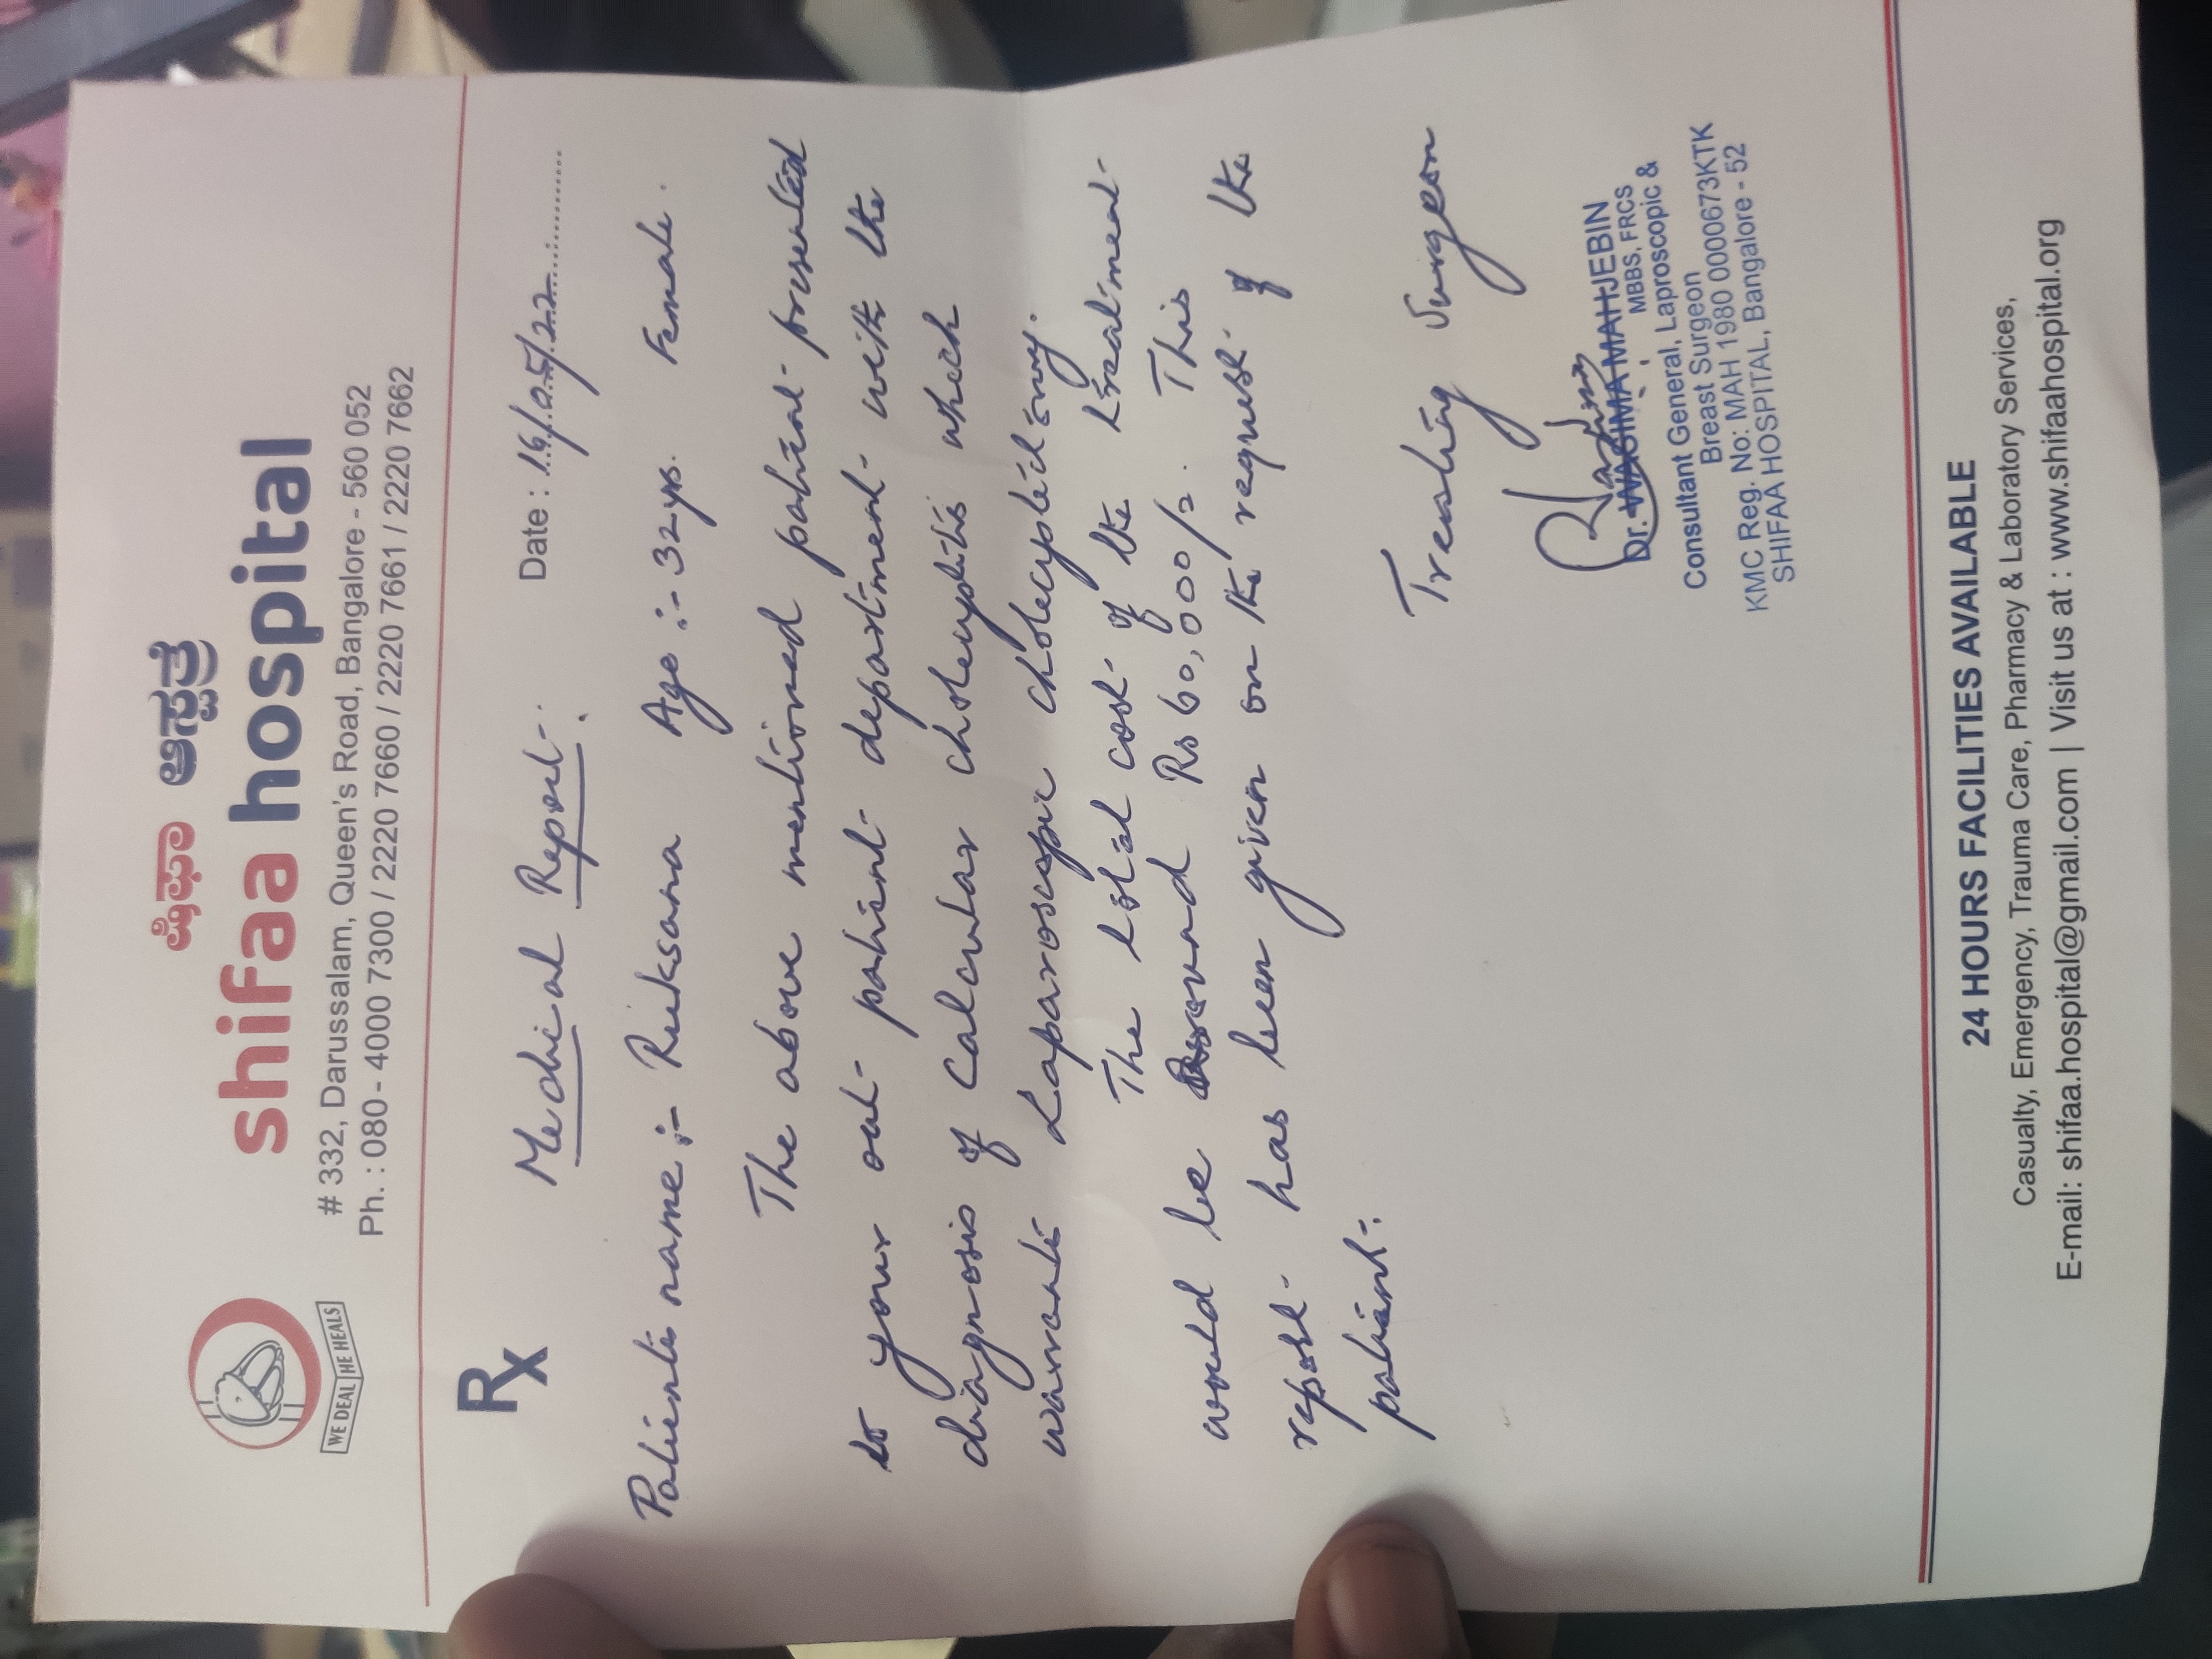 ಶಿಫಾ ಆಸ್ಪತ್ರೆ
shifaa hospital
# 332, Darussalam, Queen's Road, Bangalore - 560 052
Ph. : 080 - 4000 7300 / 2220 7660 / 2220 7661 / 2220 7662
WE DEAL HE HEALS
Rx
Medical Report.
Date : 16/05/22
Patients name :- Ruksana Age :- 32 yrs. Female.
The above mentioned patient presented
to your out-patient department with the
diagnosis of calcular cholecystitis which
warrants Laparoscopic cholecystectomy.
The total cost of the treatment
would be around Rs 60,000/-. This
report has been given on the request of the
patient.
Treating Surgeon
Dr. WASIMA MAHJEBIN
MBBS, FRCS
Consultant General, Laproscopic &
Breast Surgeon
KMC Reg. No: MAH 1980 0000673KTK
SHIFAA HOSPITAL, Bangalore - 52
24 HOURS FACILITIES AVAILABLE
Casualty, Emergency, Trauma Care, Pharmacy & Laboratory Services,
E-mail: shifaa.hospital@gmail.com | Visit us at : www.shifaahospital.org